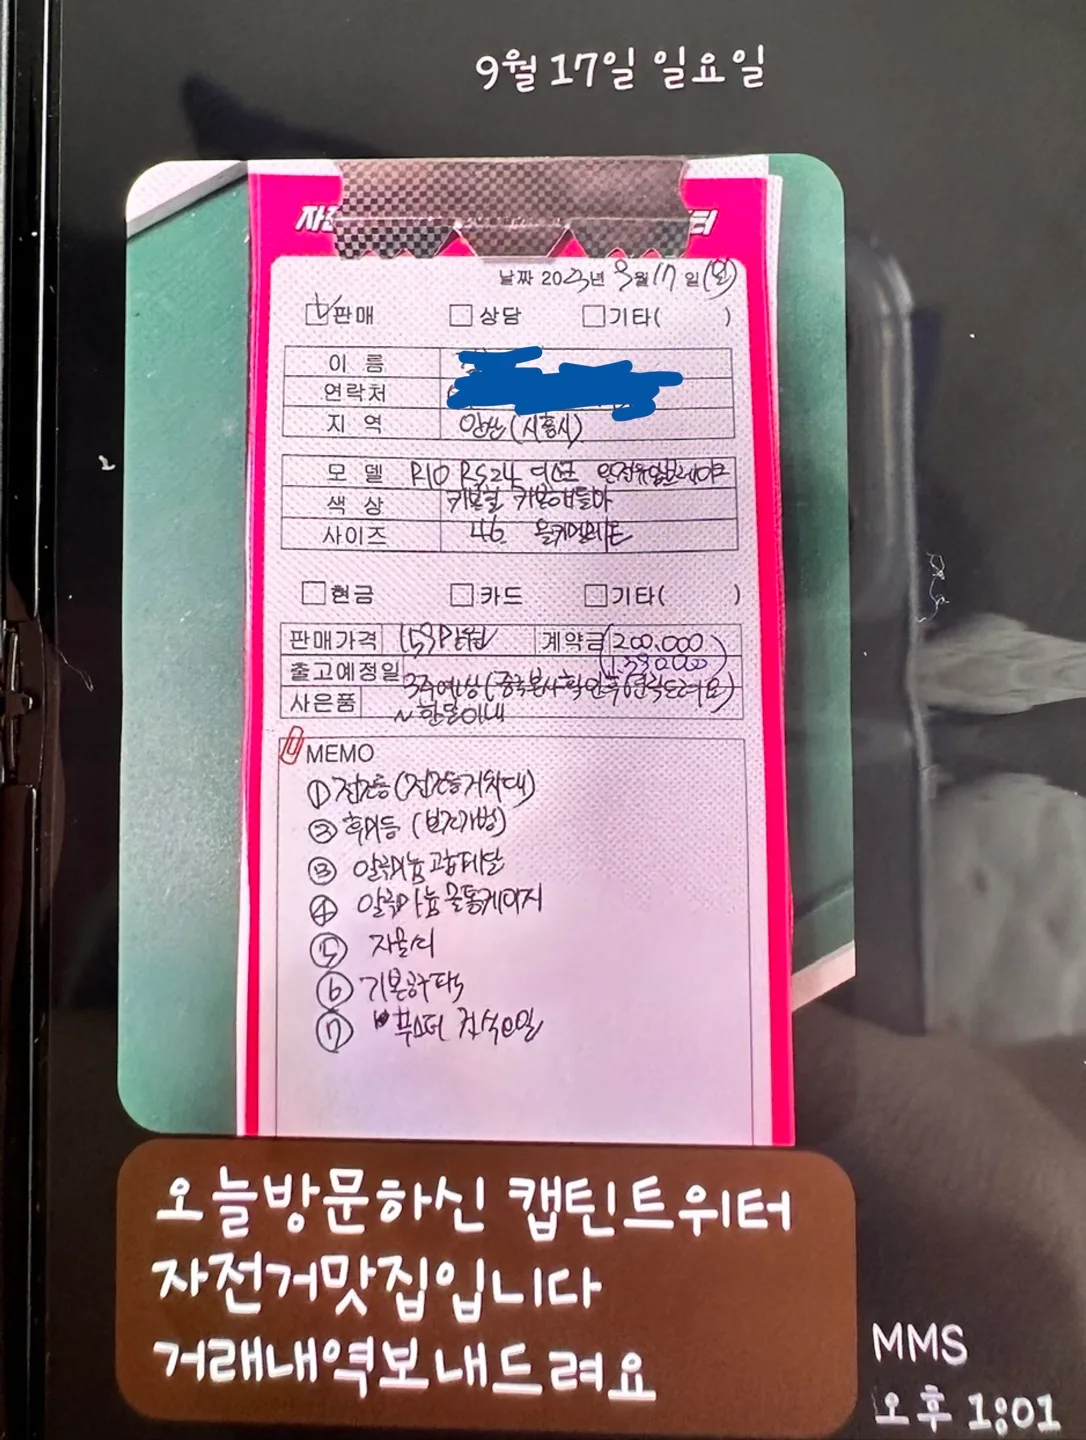 9월 17일 일요일
날짜 2023년 9월 17일 (일)
판매 상담 기타( )
이 름
연락처
지 역 안산 (시흥시)
모 델 R10 RS24 디스크 완전유압브레이크
색 상 카본휠 카본핸들바
사이즈 46
현금 카드 기타( )
판매가격 159만원 계약금 200,000
1,390,000
출고예정일 3주예상 (중국본사 확인후 연락드려요)
사은품 ~한달이내
MEMO
① 전조등 (전조등거치대)
② 후미등 (번개가방)
③ 알루미늄 고급페달
④ 알루미늄 물통케이지
⑤ 자물쇠
⑥ 기본공구
⑦
오늘방문하신 캡틴트위터
자전거맛집입니다
거래내역보내드려요
MMS
오후 1:01